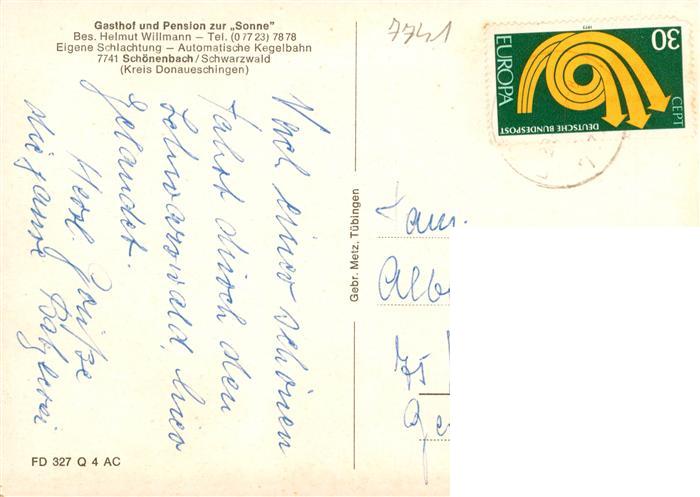 Gasthof und Pension zur „Sonne"
Bes. Helmut Willmann – Tel. (0 77 23) 78 78
Eigene Schlachtung – Automatische Kegelbahn
7741 Schönenbach/Schwarzwald
(Kreis Donaueschingen)
Nach einer schönen
Fahrt durch den
Schwarzwald, hier
gelandet.
Herzl. Grüße
die ganze
FD 327 Q 4 AC
Gebr. Metz, Tübingen
7741
30
1973
EUROPA
CEPT
DEUTSCHE BUNDESPOST
Fam.
Albe
75
Ge